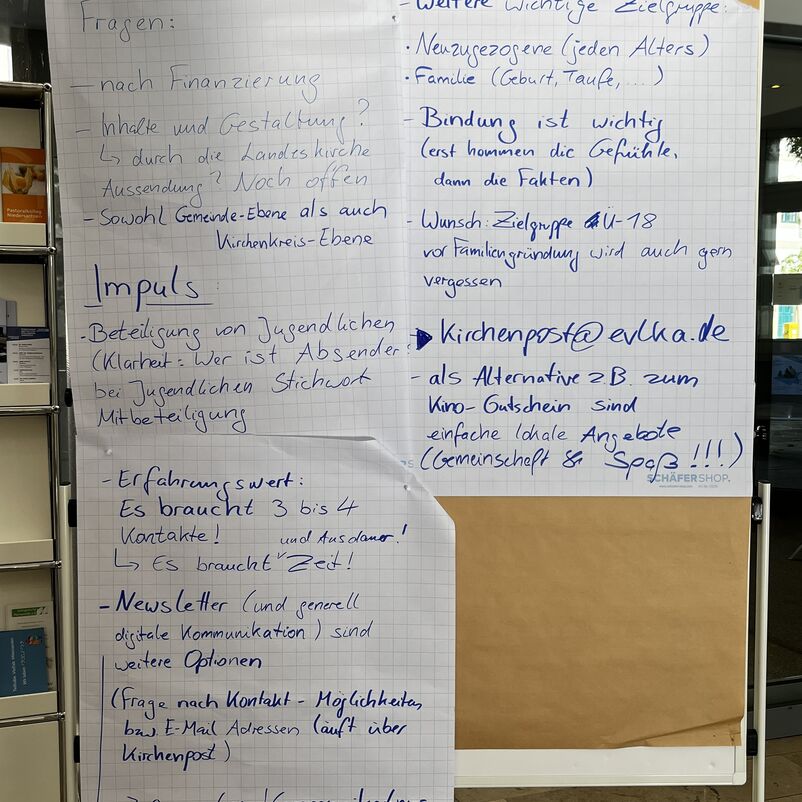 Fragen:
- nach Finanzierung
- Inhalte und Gestaltung?
↳ durch die Landeskirche
Aussendung? Noch offen
- Sowohl Gemeinde-Ebene als auch
Kirchenkreis-Ebene
Impuls
- Beteiligung von Jugendlichen
(Klarheit: Wer ist Absender?
bei Jugendlichen Stichwort
Mitbeteiligung
- Erfahrungswert:
Es braucht 3 bis 4
Kontakte!
und Ausdauer!
↳ Es braucht Zeit!
- Newsletter (und generell
digitale Kommunikation) sind
weitere Optionen
(Frage nach Kontakt-Möglichkeiten
bzw. E-Mail Adressen läuft über
Kirchenpost)
- Weitere wichtige Zielgruppe:
• Neuzugezogene (jeden Alters)
• Familie (Geburt, Taufe, ....)
- Bindung ist wichtig
(erst kommen die Gefühle,
dann die Fakten)
- Wunsch: Zielgruppe Ü-18
vor Familiengründung wird auch gern
vergessen
kirchenpost@evlka.de
- als Alternative z.B. zum
Kino-Gutschein sind
einfache lokale Angebote
(Gemeinschaft & Spaß!!!)
SCHÄFERSHOP.